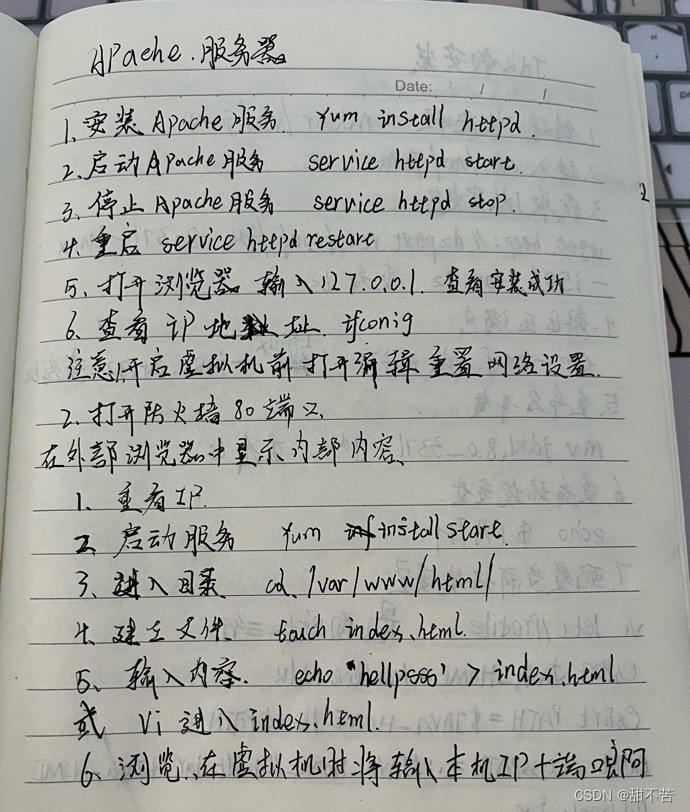 Apache.服务器
Date: / /
1、安装Apache服务. Yum install httpd.
2、启动Apache服务 service httpd start.
3、停止Apache服务 service httpd stop.
4、重启 service httpd restart
5、打开浏览器 输入127.0.0.1. 查看安装成功
6、查看IP地址 ifconig
注意1.开启虚拟机前打开编辑 重置网络设置.
2.打开防火墙80端口.
在外部浏览器中显示内部内容、
1、查看IP.
2、启动服务 Yum install start.
3、进入目录 cd. /var/www/html/
4、建立文件. touch index.html.
5、输入内容. echo "hellpess' > index.html
或 Vi 进入index.html.
6、浏览..在虚拟机时将输入本机IP+端口
CSDN @甜不苦